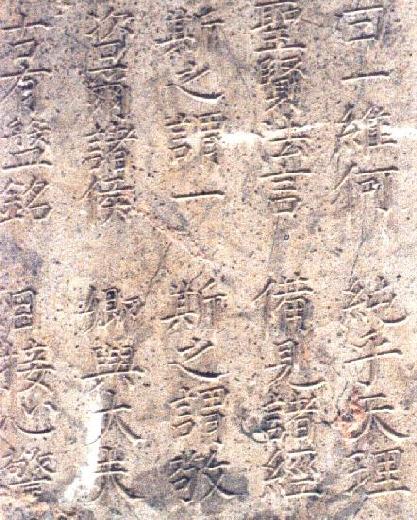 曰一維何 純乎天理
聖賢法言 備見諸經
斯之謂一 斯之謂敬
咨爾諸侯 卿與大夫
古有盤銘 目接心警